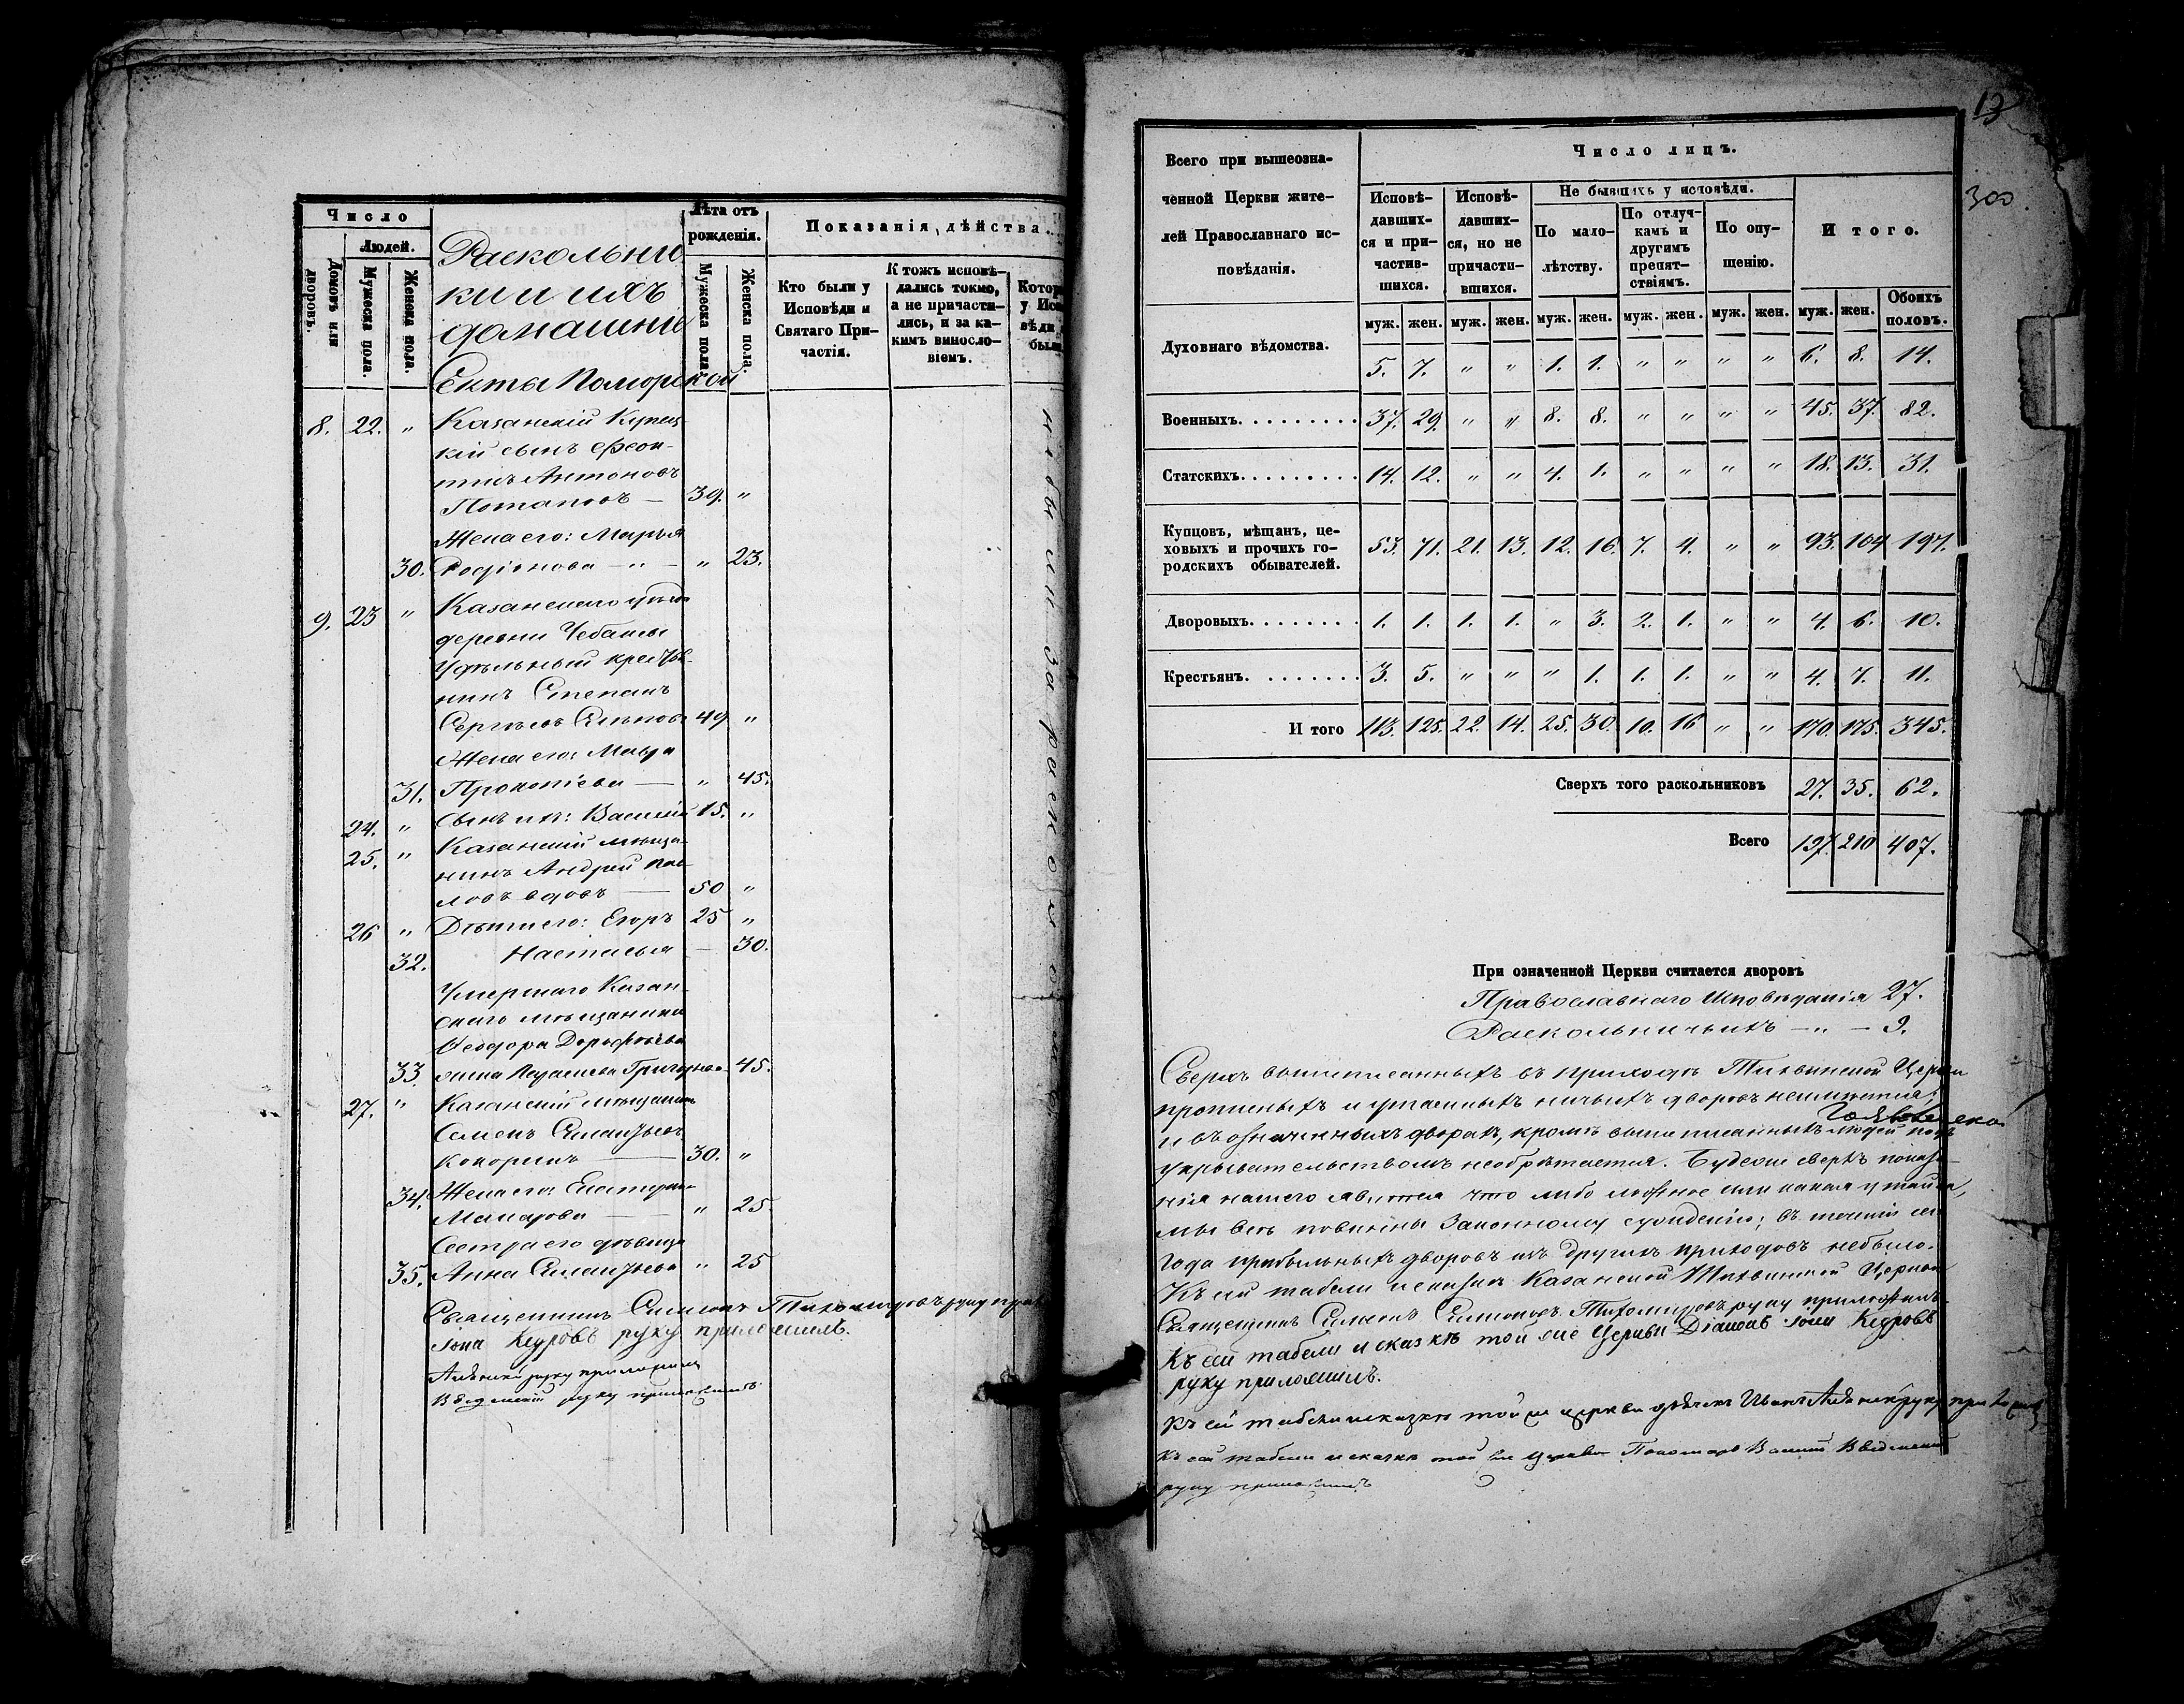 Число
Людей.
Домовъ или дворовъ.
Мужеска пола.
Женска пола.
Раскольни
ки и ихъ
домашніе
Секты Поморской
Лѣта отъ рожденія.
Мужеска пола.
Женска пола.
Показанія дѣйства.
Кто были у Исповѣди и Святаго Причастія.
К тожъ исповѣдались токмо, а не причастились, и за какимъ винословіемъ.
8. 22. " Казанскій Купец
кій сынъ Феок
тистъ Антоновъ
Потаповъ — 39. "
Жена его: Марья
30. Родіонова — " — " 23.
9. 23 " Казанскаго уѣзда
деревни Чебаксы
Удѣльный крестья
нинъ Степанъ
Сергѣевъ 49 "
Жена его: Мавра
31. Прокопіева — " 45.
24. " Сынъ ихъ: Василій 15. "
25. " Казанскій мѣща
нинъ Андрей Пав
ловъ вдовъ — 50 "
26 " Дѣти его: Егоръ 25 "
32. Настасья — 30.
Умершаго Казан
скаго мѣщанина
Ѳеодора Дорофѣева
33. жена Григорьева 45.
27. " Казанскій мѣщанинъ
Семенъ
Кокоринъ — 30. "
34. Жена его: Екатерина
Макарова — " 25
Сестра его дѣвица
35. Анна " 25
Священникъ Симеонъ Тихомировъ руку
Іона Кедровъ руку приложилъ.
руку приложилъ
Введенскій руку приложилъ
13
300
Всего при вышеозна-
ченной Церкви жите-
лей Православнаго ис-
повѣданія.
Число лицъ.
Исповѣдавшихся и причастившихся.
Исповѣдавшихся, но не причастившихся.
Не бывшихъ у исповѣди.
По малолѣтству.
По отлучкамъ и другимъ препятствіямъ.
По опущенію.
Итого.
муж. жен. муж. жен. муж. жен. муж. жен. муж. жен. муж. жен. Обоихъ половъ.
Духовнаго вѣдомства. 5. 7. " " 1. 1. " " " " 6. 8. 14.
Военныхъ. 37. 29. " " 8. 8. " " " " 45. 37. 82.
Статскихъ. 14. 12. " " 4. 1. " " " " 18. 13. 31.
Купцовъ, мѣщанъ, це-
ховыхъ и прочихъ го-
родскихъ обывателей. 53. 71. 21. 13. 12. 16. 7. 4. " " 93. 104 197.
Дворовыхъ. 1. 1. 1. 1. " 3. 2. 1. " " 4. 6. 10.
Крестьянъ. 3. 5. " " " 1. 1. 1. " " 4. 7. 11.
И того 113. 125. 22. 14. 25. 30. 10. 16 " " 170. 175. 345.
Сверхъ того раскольниковъ 27. 35. 62.
Всего 197. 210 407.
При означенной Церкви считается дворовъ
Православнаго Исповѣданія 27.
Раскольничьихъ — " — 9.
Сверхъ вышеписанныхъ въ приходѣ Тихвинской Церкви
прописныхъ и утаенныхъ ничьихъ дворовъ неимѣется;
и въ означенныхъ дворахъ, кромѣ вышеписанныхъ людей подъ
укрывательствомъ необрѣтается. Буде сверхъ показа-
нія нашего явится что либо ложное или какая утайка,
мы всѣ повинны Законному сужденію; въ теченіи сего
года прибыльныхъ дворовъ изъ другихъ приходовъ небыло.
Къ сей табели и сказкѣ Казанской Тихвинской Церкви
Священникъ Симеонъ Симоновъ Тихомировъ руку приложилъ.
Къ сей табели и сказкѣ той же Церкви Діаконъ Іона Кедровъ
руку приложилъ.
Къ сей табели и сказкѣ той же церкви дьячекъ Иванъ руку приложилъ
Къ сей табели и сказкѣ той же Церкви Пономарь Введенскій
руку приложилъ